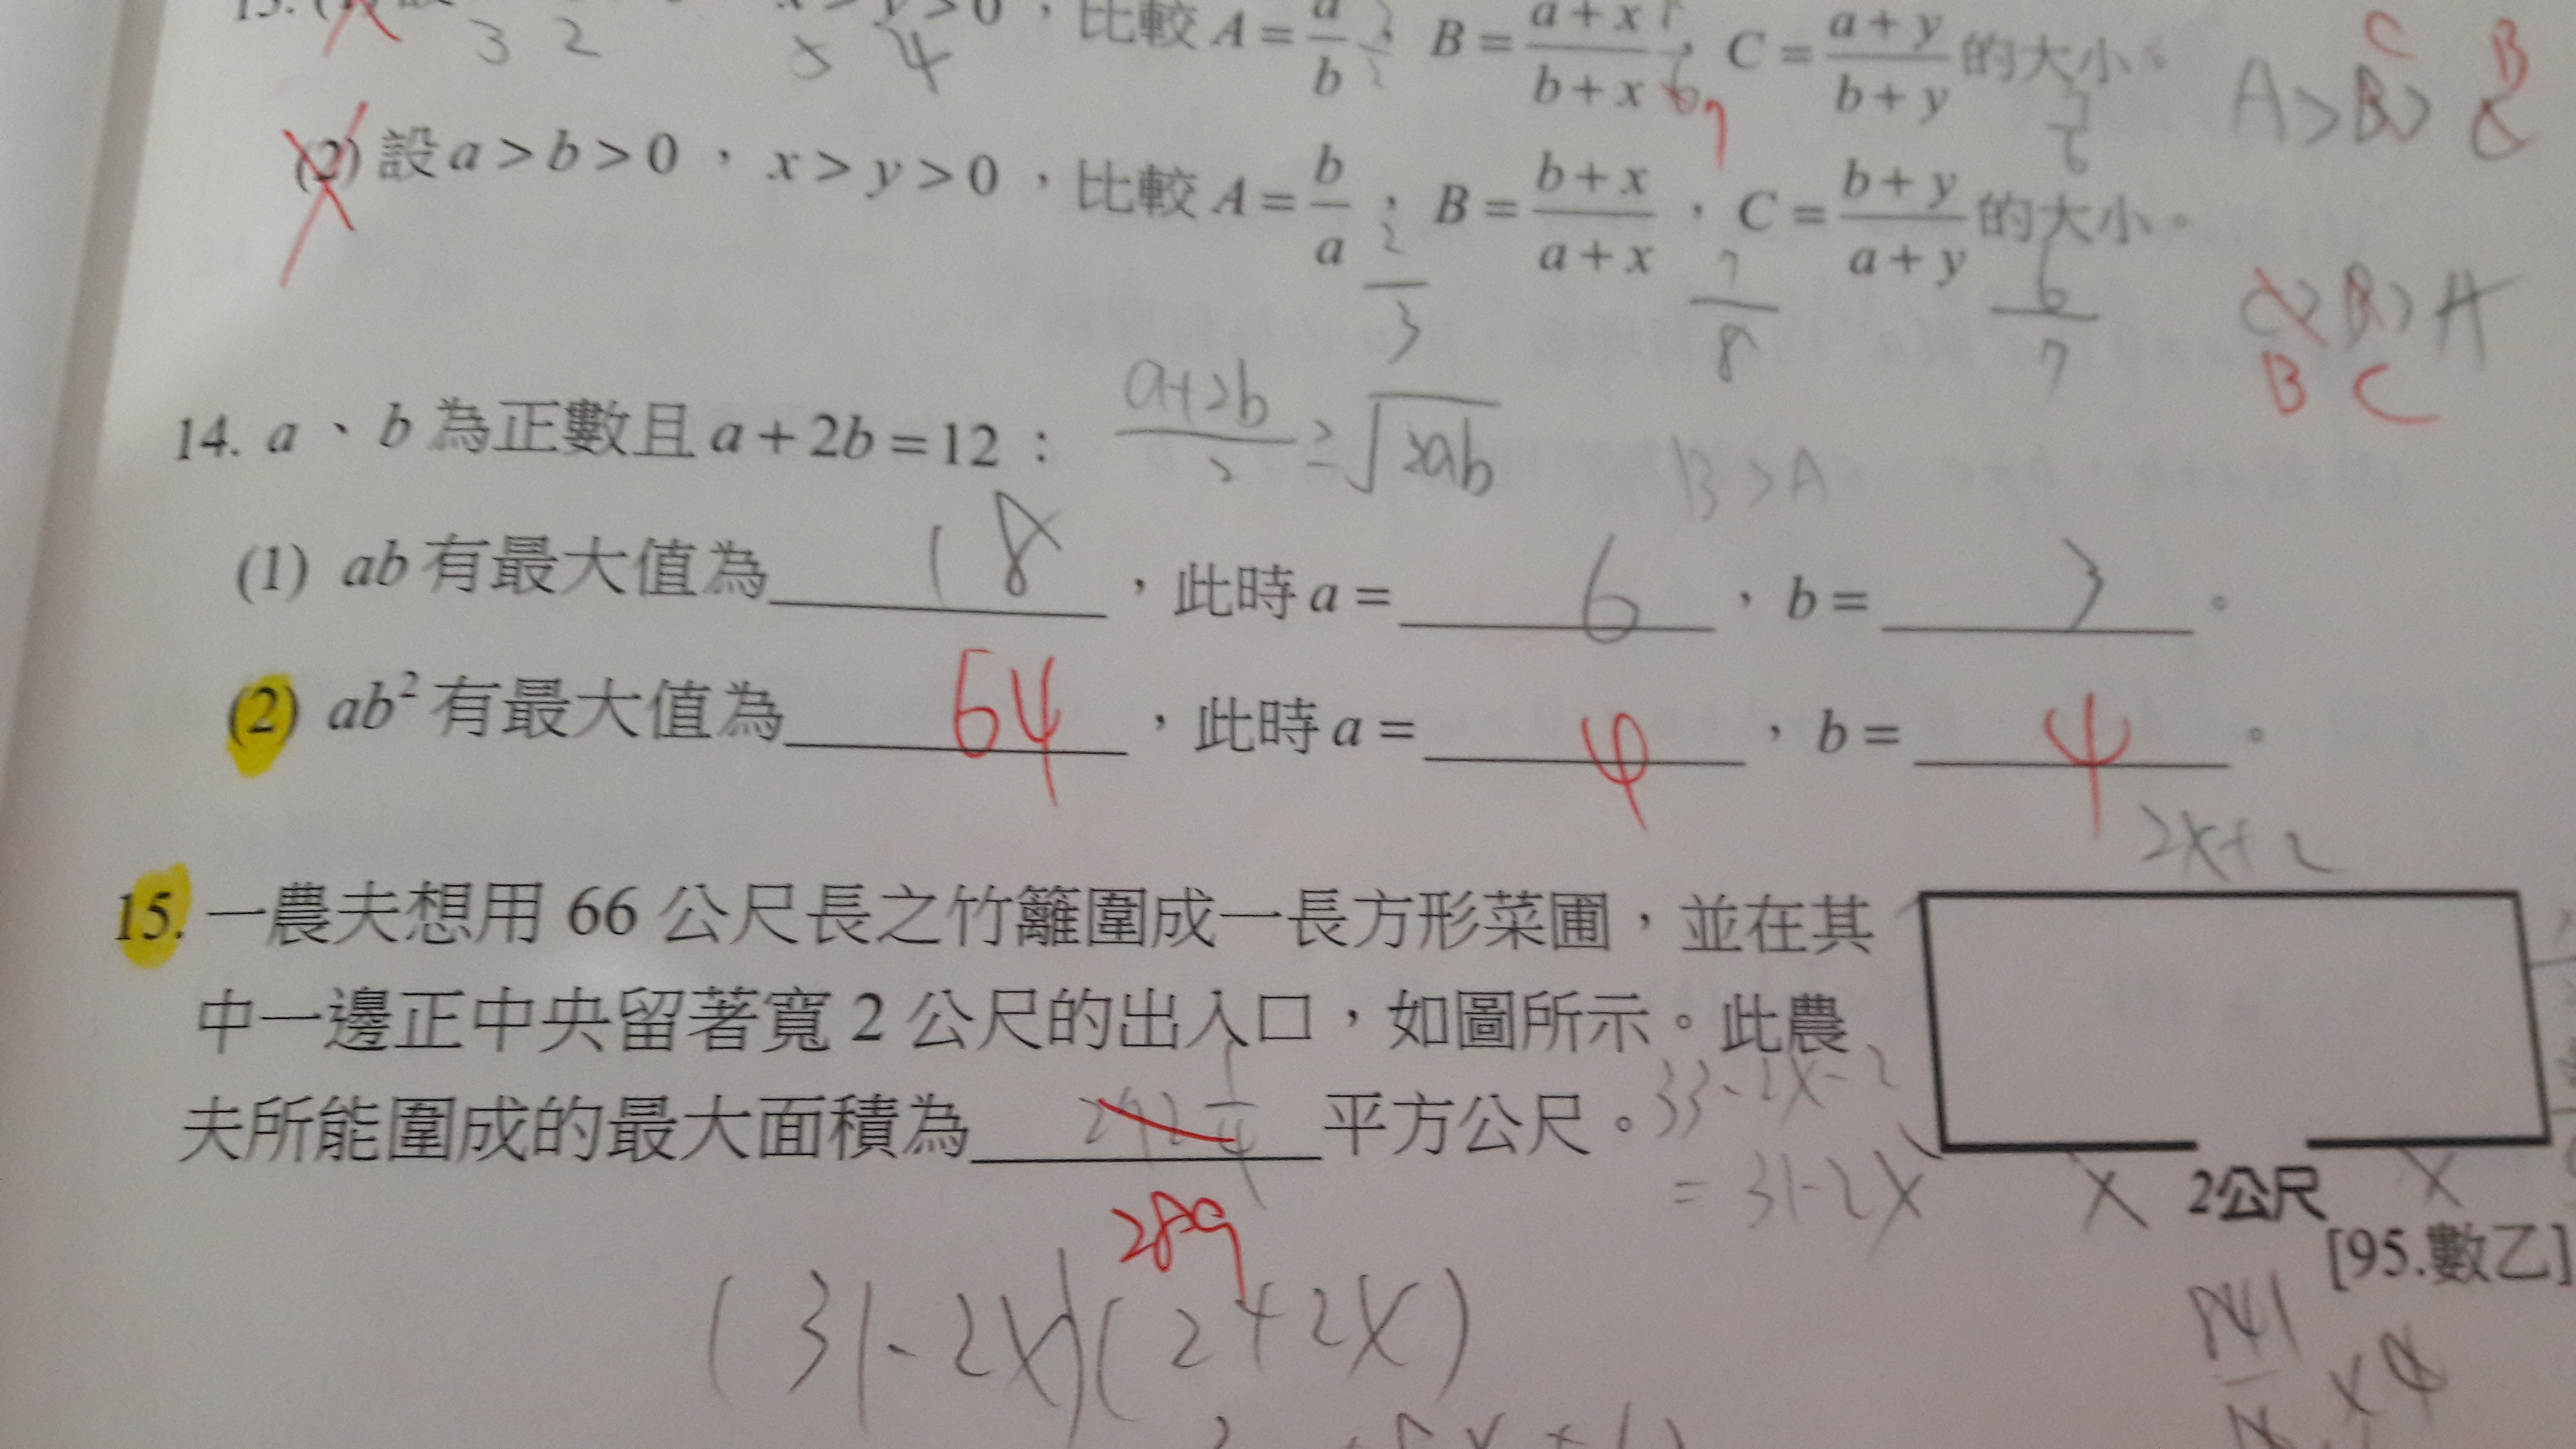 x > y > 0，比較 A = a/b，B = (a + x)/(b + x)，C = (a + y)/(b + y) 的大小。
3 2 5 4
A > B > C
C B
7/6
(2) 設 a > b > 0，x > y > 0，比較 A = b/a，B = (b + x)/(a + x)，C = (b + y)/(a + y) 的大小。
2/3 7/8 6/7
C > B > A
B C
14. a、b 為正數且 a + 2b = 12： (a+2b)/2 ≥ √2ab
B > A
(1) ab 有最大值為 18，此時 a = 6，b = 3。
(2) ab² 有最大值為 64，此時 a = 4，b = 4。
2x+2
15. 一農夫想用 66 公尺長之竹籬圍成一長方形菜圃，並在其
中一邊正中央留著寬 2 公尺的出入口，如圖所示。此農
夫所能圍成的最大面積為 平方公尺。
33-2x-2
= 31-2x
x 2公尺 x
289
[95.數乙]
(31-2x)(2+2x)